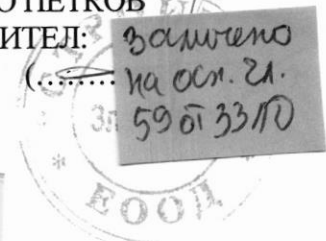 ПЕТКОВ
ИТЕЛ:
(..........
заличено
на осн. чл.
59 от ЗЗЛД
ЕООД